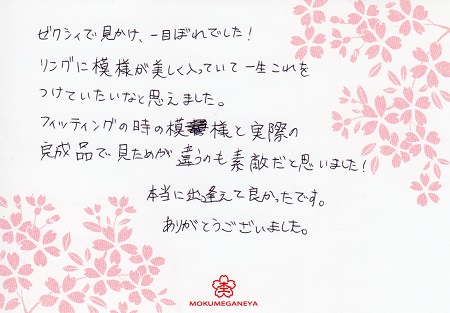 ゼクシィで見かけ、一目ぼれでした!
リングに模様が美しく入っていて一生これを
つけていたいなと思えました。
フィッティングの時の模様と実際の
完成品で見ためが違うのも素敵だと思いました!
本当に出逢えて良かったです。
ありがとうございました。
MOKUMEGANEYA